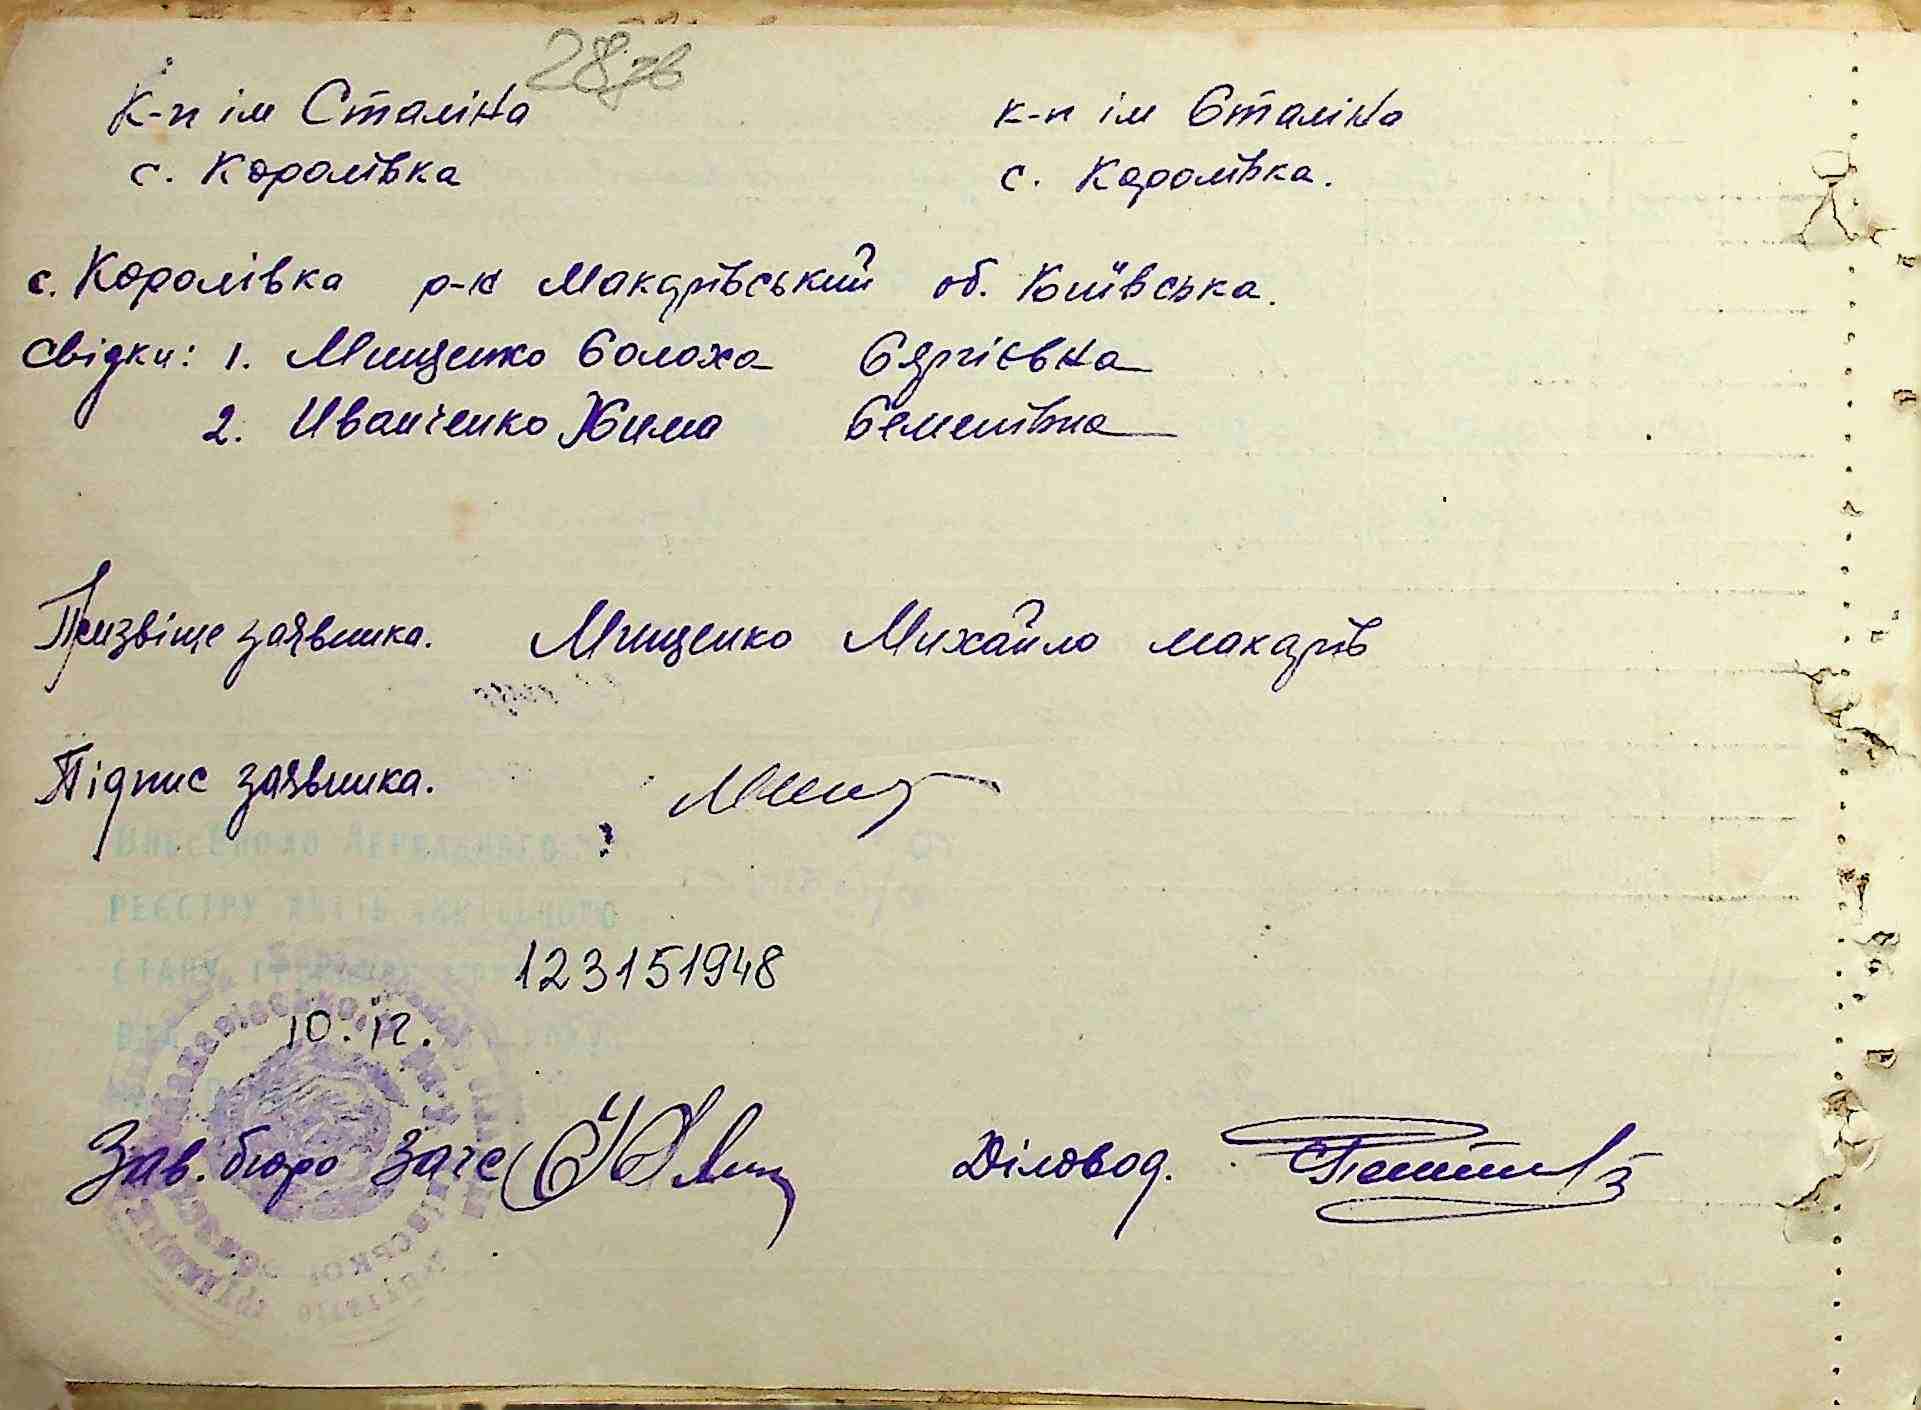 28зв
К-п ім Сталіна к-п ім Сталіна
с. Королівка с. Королівка.
с. Королівка р-н Макарівський об. Київська.
Свідки: 1. Мищенко Солоха Сяргієвна
2. Иванченко Хима Семенівна
Призвіще заявника. Мищенко Михайло Макарів
Підпис заявника.
РЕЄСТРУ АКТІВ
СТАНУ
123151948
10. ІІ.
Зав. бюро Загс Діловод.